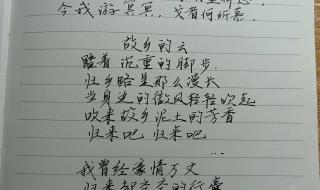 今我游冥冥,弋者何所慕。
故乡的云
踏着沉重的脚步
归乡路是那么漫长
当身边的微风轻轻吹起
吹来故乡泥土的芳香
归来吧 归来吧
…
我曾经豪情万丈
归来却空空的行囊